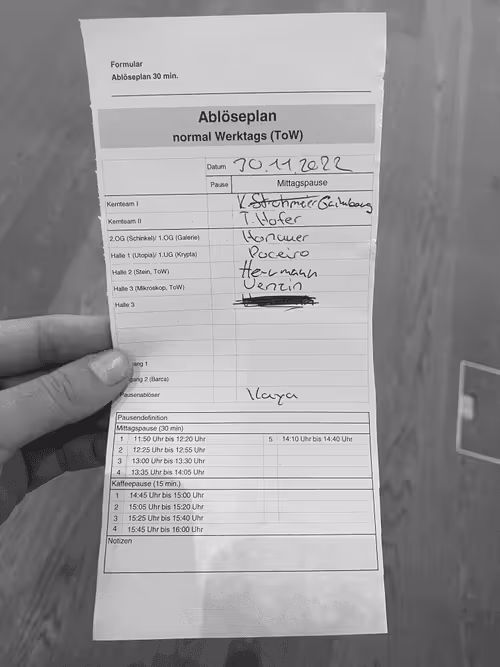 Formular
Ablöseplan 30 min.
Ablöseplan
normal Werktags (ToW)
Datum 30.11.2022
Pause Mittagspause
Kernteam I
Kernteam II T. Hofer
2.OG (Schinkel)/ 1.OG (Galerie)
Halle 1 (Utopia)/ 1.UG (Krypta)
Halle 2 (Stein, ToW) Herrmann
Halle 3 (Mikroskop, ToW) Venzin
Halle 3
gang 1
gang 2 (Barca)
Pausenablöser Kaya
Pausendefinition
Mittagspause (30 min)
1 11:50 Uhr bis 12:20 Uhr 5 14:10 Uhr bis 14:40 Uhr
2 12:25 Uhr bis 12:55 Uhr
3 13:00 Uhr bis 13:30 Uhr
4 13:35 Uhr bis 14:05 Uhr
Kaffeepause (15 min.)
1 14:45 Uhr bis 15:00 Uhr
2 15:05 Uhr bis 15:20 Uhr
3 15:25 Uhr bis 15:40 Uhr
4 15:45 Uhr bis 16:00 Uhr
Notizen